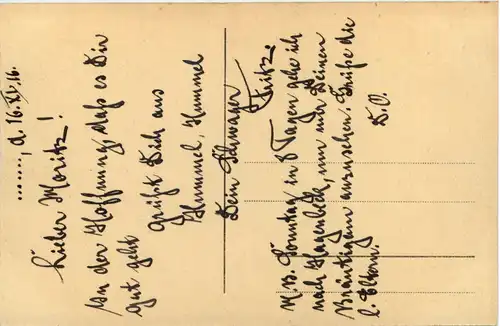 ......, d. 16. XI. 16.
Lieber Moritz!
In der Hoffnung, daß es Dir
gut geht
grüßt Dich aus
Hummel, Hummel
Dein Schwager
Fritz.
N.B. Sonntag in 8 Tagen gehe ich
nach Hagenbeck, um mir Deinen
Bräutigam anzusehen. Grüße die
l. Eltern. D. O.